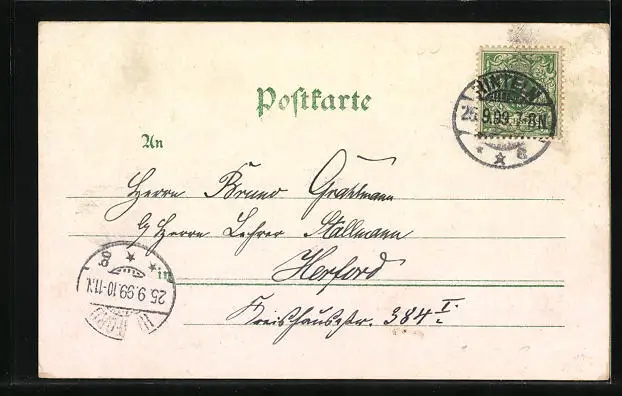 Postkarte
RINTELN
25.9.99.7-8N.
* * a
An
Herrn Bruno Grahlmann
b/ Herrn Lehrer Stallmann
in Herford
Kreishausstr. 384 I.
25.9.99.10-11.N.
HERFORD